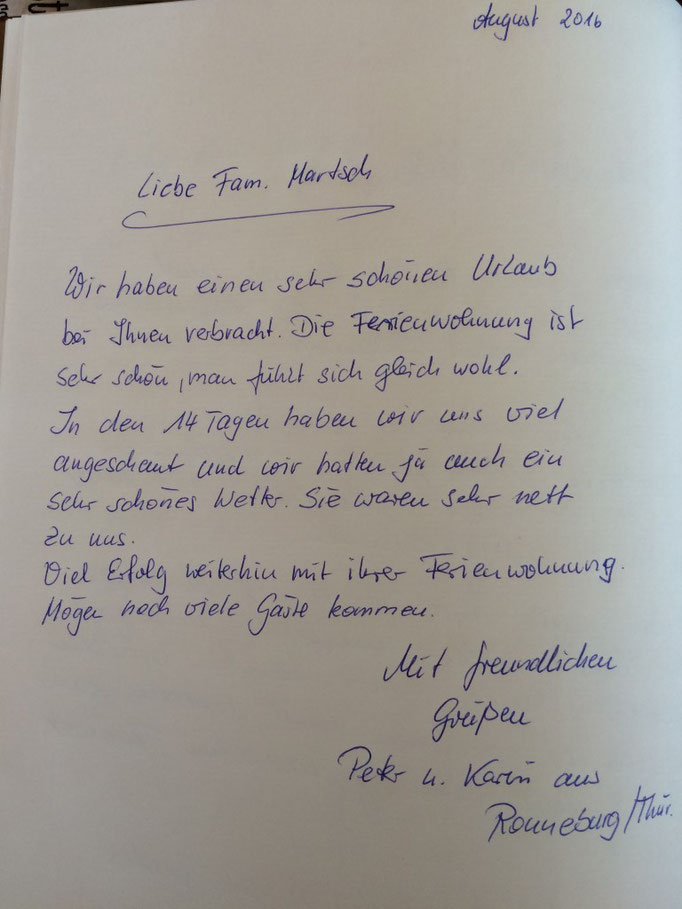 August 2016
Liebe Fam. Martsch
Wir haben einen sehr schönen Urlaub
bei Ihnen verbracht. Die Ferienwohnung ist
sehr schön, man fühlt sich gleich wohl.
In den 14 Tagen haben wir uns viel
angeschaut und wir hatten ja auch ein
sehr schönes Wetter. Sie waren sehr nett
zu uns.
Viel Erfolg weiterhin mit ihrer Ferienwohnung.
Mögen noch viele Gäste kommen.
Mit freundlichen
Grüßen
Peter u. Karin aus
Ronneburg/Thür.